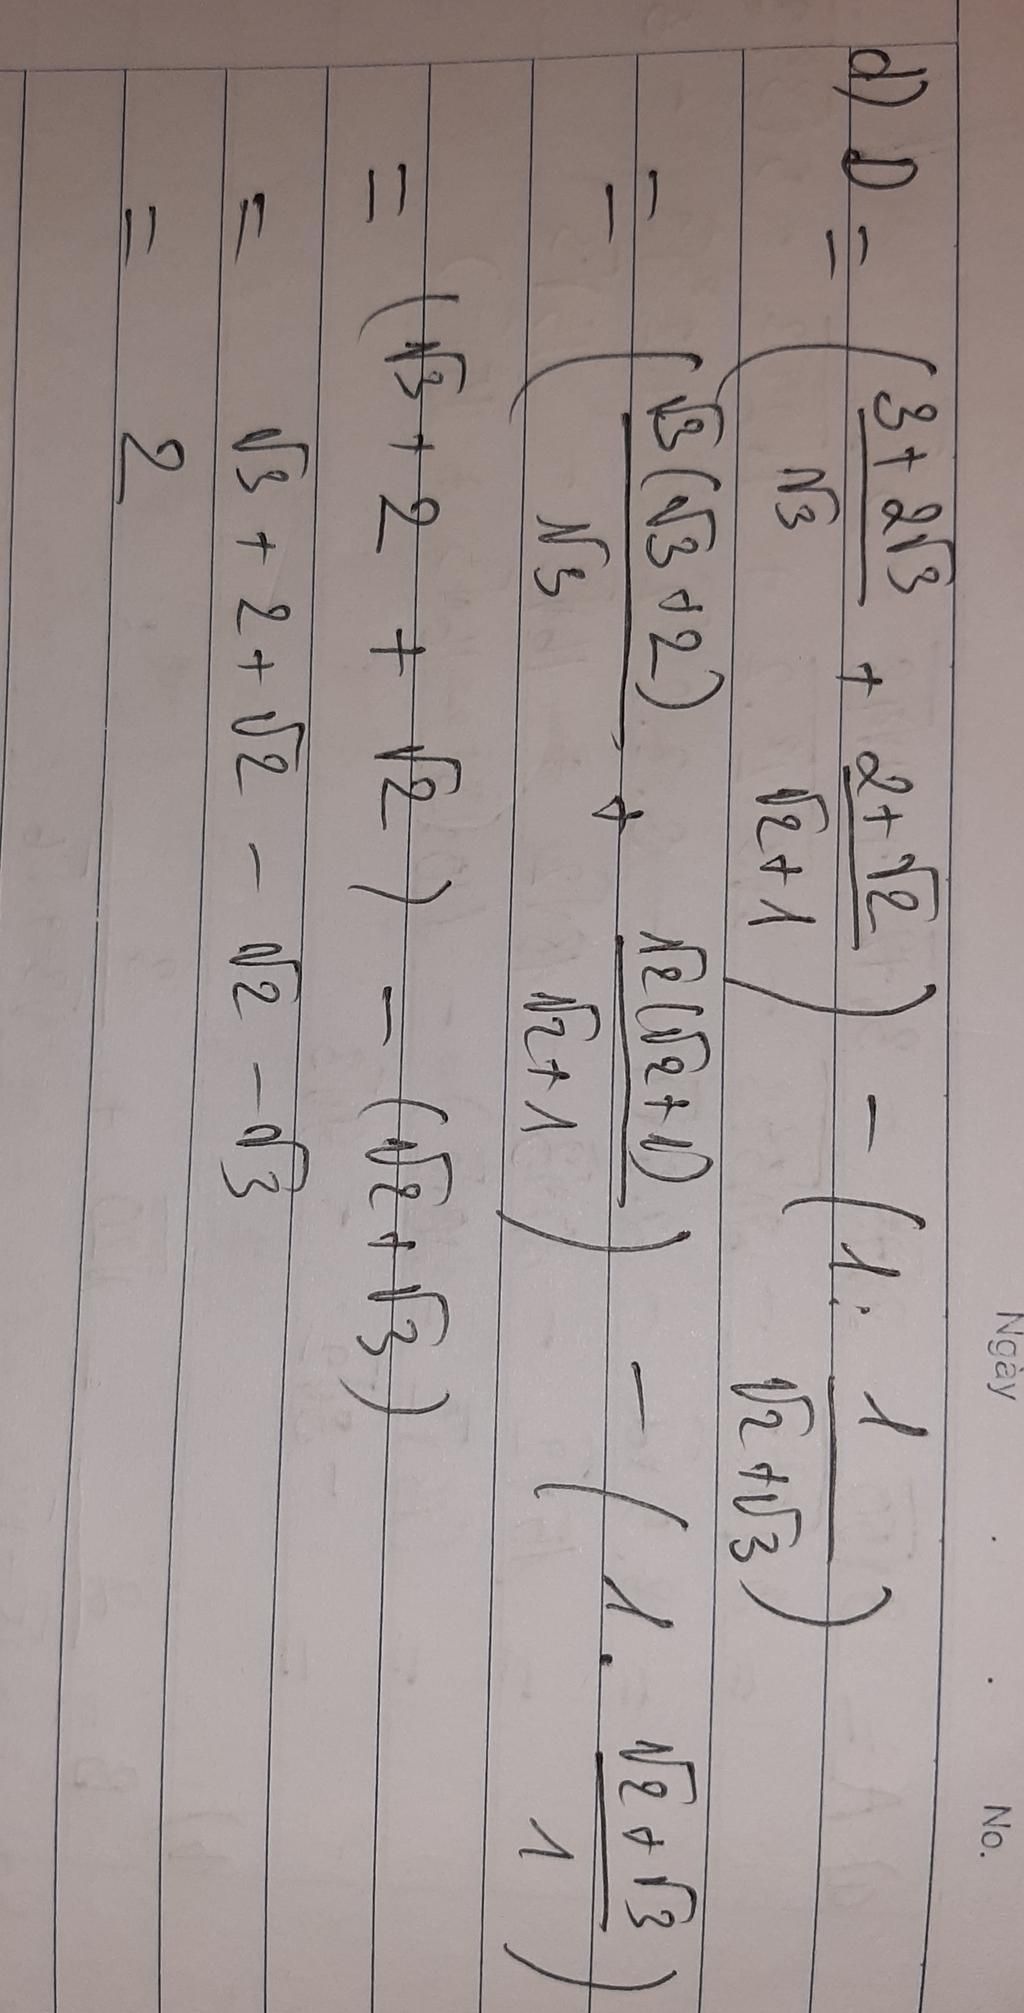 Ngày No.
d) D = ( (3+2√3)/√3 + (2+√2)/(√2+1) ) - ( 1 : 1/(√2+√3) )
= ( √3(√3+2)/√3 + √2(√2+1)/(√2+1) ) - ( 1 . (√2+√3)/1 )
= (√3 + 2 + √2) - (√2 + √3)
= √3 + 2 + √2 - √2 - √3
= 2